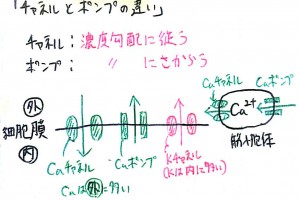 「チャネルとポンプの違い」
チャネル：濃度勾配に従う
ポンプ：　〃　にさからう
Caチャネル　Caポンプ
Ca²⁺
筋小胞体
外
細胞膜
内
Caチャネル
Caは外に多い
Caポンプ
Kチャネル
(Kは内に多い)